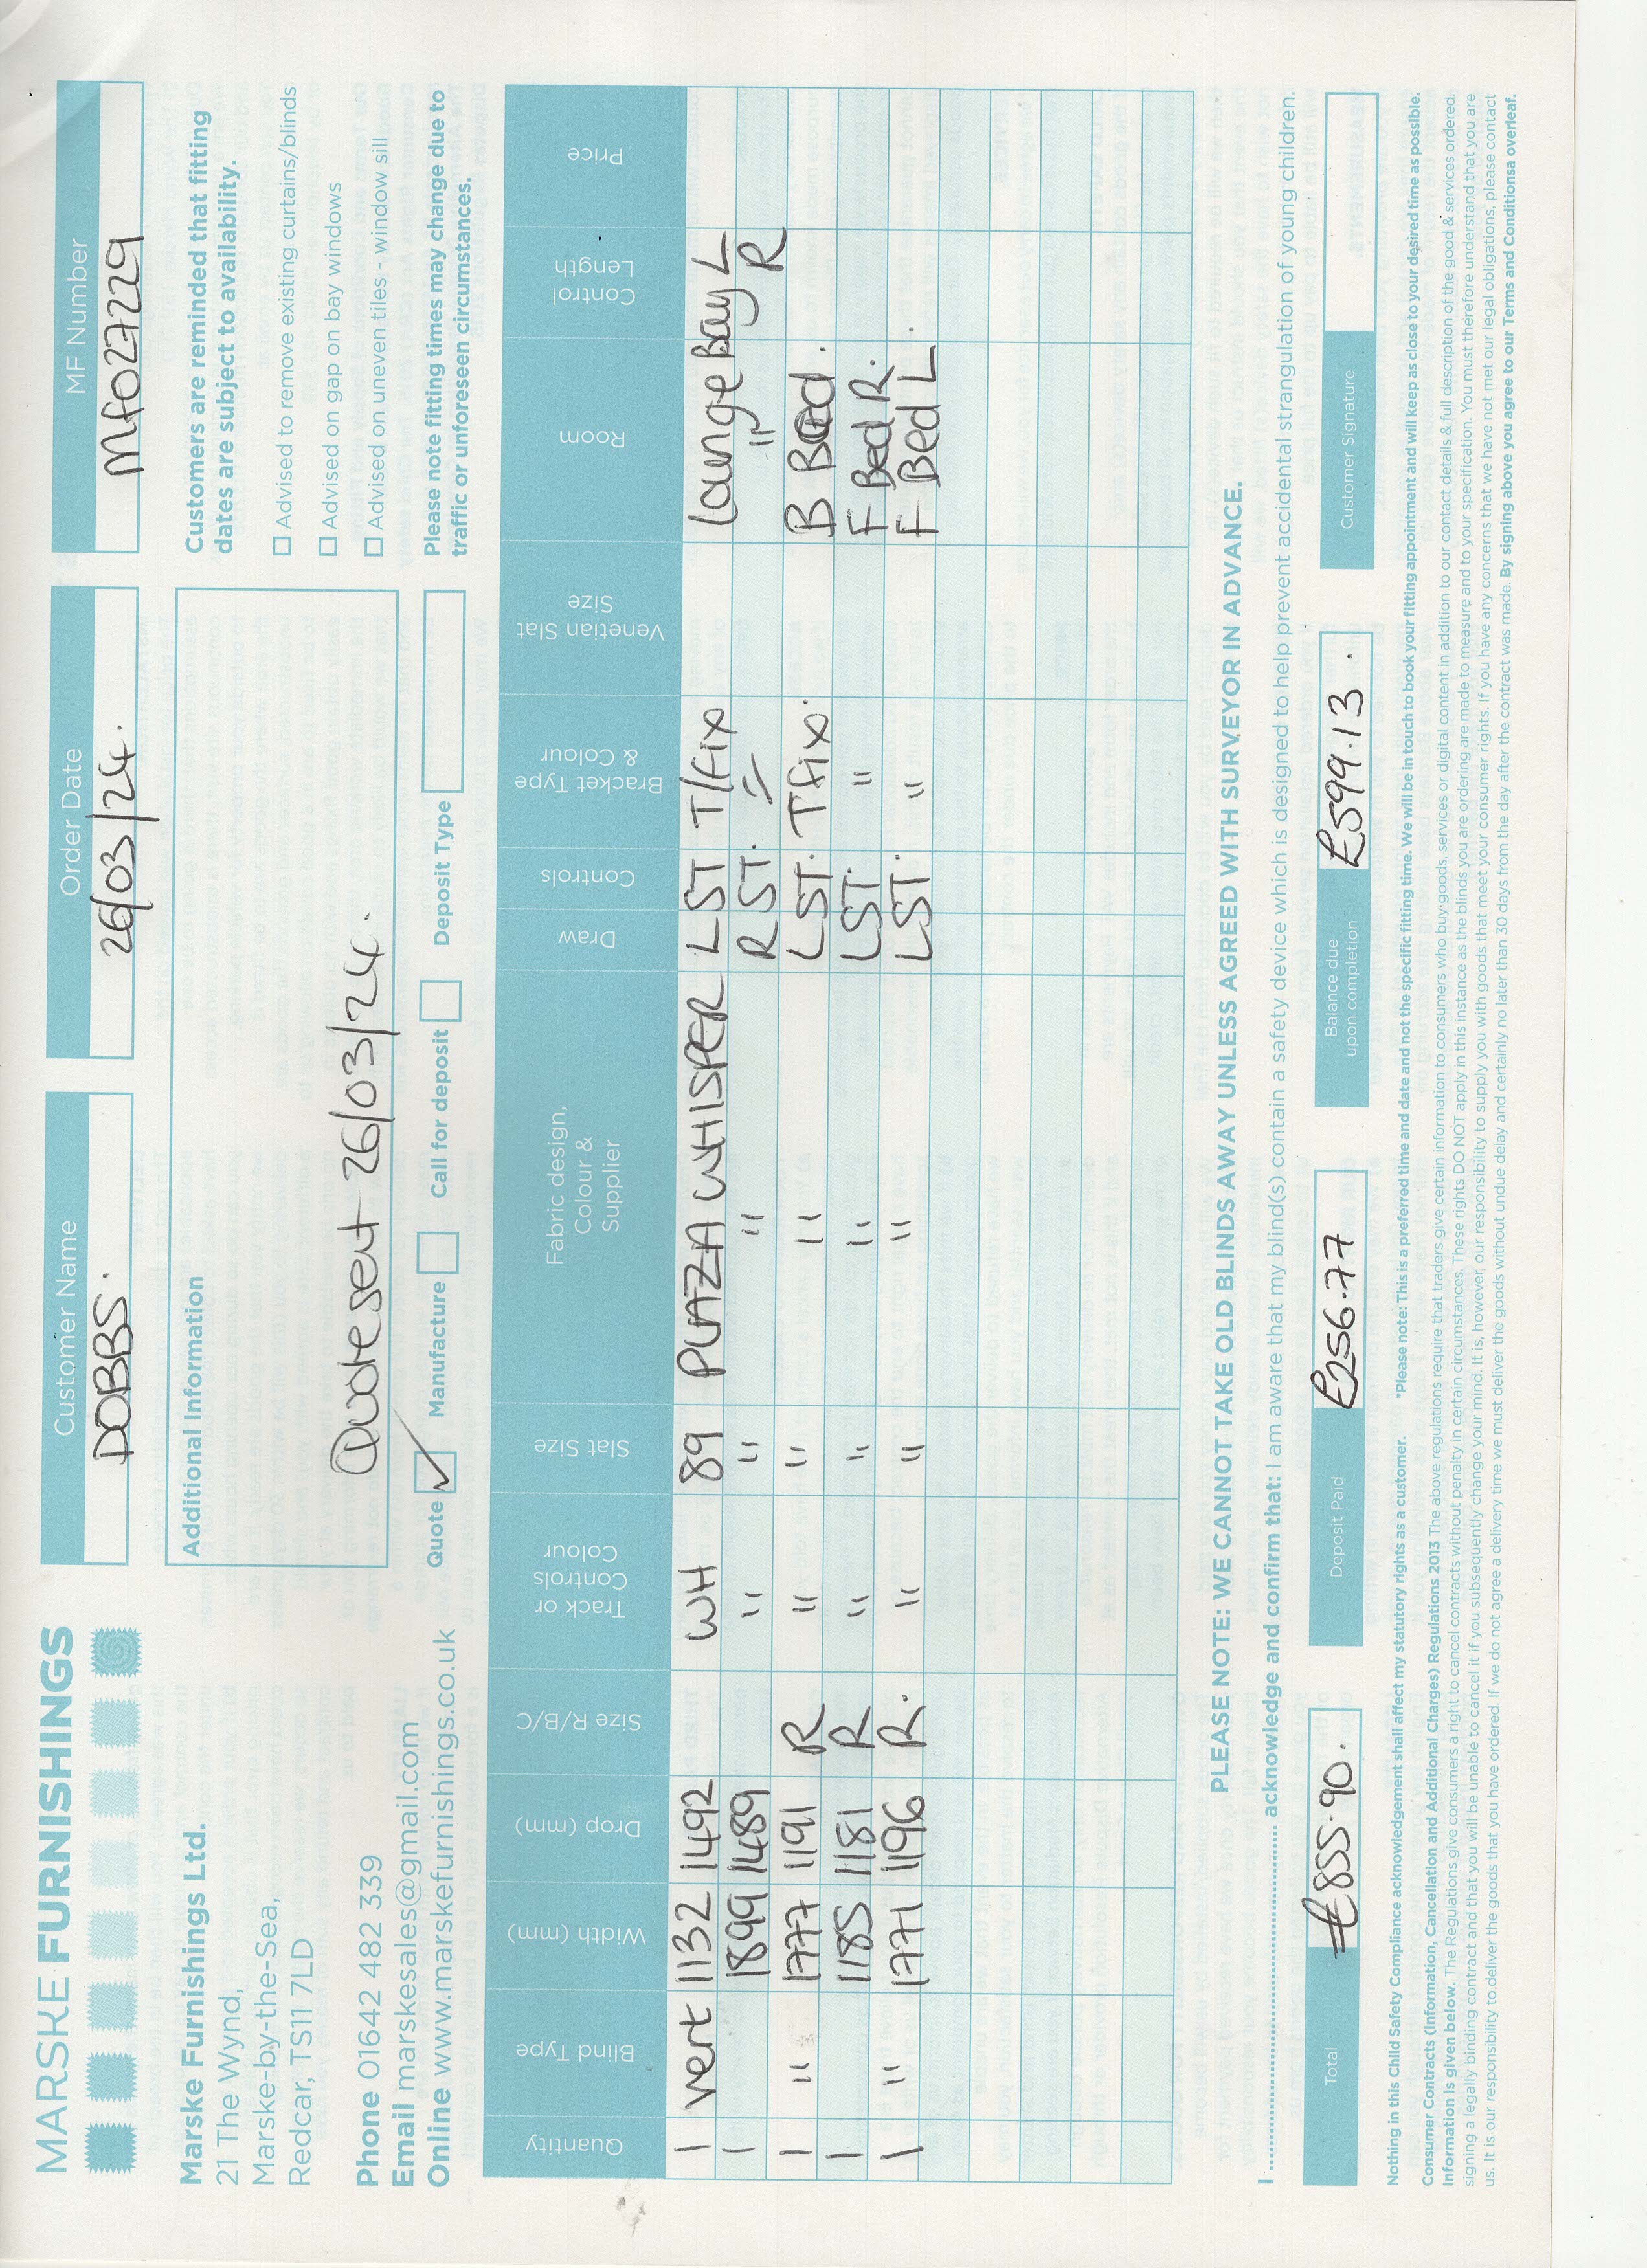 MARSKE FURNISHINGS
Marske Furnishings Ltd.
21 The Wynd,
Marske-by-the-Sea,
Redcar, TS11 7LD
Phone 01642 482 339
Email marskesales@gmail.com
Online www.marskefurnishings.co.uk
Customer Name
DOBBS.
Order Date
26/03/24.
MF Number
Mf027229
Additional Information
Quote sent 26/03/24.
Customers are reminded that fitting
dates are subject to availability.
Advised to remove existing curtains/blinds
Advised on gap on bay windows
Advised on uneven tiles - window sill
Please note fitting times may change due to
traffic or unforeseen circumstances.
Quote ✓ Manufacture Call for deposit Deposit Type
Quantity Blind Type Width (mm) Drop (mm) Size R/B/C Track or Controls Colour Slat Size Fabric design, Colour & Supplier Draw Controls Bracket Type & Colour Venetian Slat Size Room Control Length Price
1 vert 1132 1492 WH 89 PLAZA WHISPER LST T/fix Lounge Bay L
1 1899 1489 " " " RST. " " R
1 " 1777 1191 R " " " LST. Tfix. B Bed.
1 1185 1181 R " " " LST. " F Bed R.
1 " 1771 1196 R. " " " LST. " F Bed L.
PLEASE NOTE: WE CANNOT TAKE OLD BLINDS AWAY UNLESS AGREED WITH SURVEYOR IN ADVANCE.
I ........................ acknowledge and confirm that: I am aware that my blind(s) contain a safety device which is designed to help prevent accidental strangulation of young children.
Total £855.90.
Deposit Paid £256.77
Balance due upon completion £599.13.
Customer Signature
Nothing in this Child Safety Compliance acknowledgement shall affect my statutory rights as a customer. *Please note: This is a preferred time and date and not the specific fitting time. We will be in touch to book your fitting appointment and will keep as close to your desired time as possible.
Consumer Contracts (Information, Cancellation and Additional Charges) Regulations 2013 The above regulations require that traders give certain information to consumers who buy goods, services or digital content in addition to our contact details & full description of the good & services ordered.
Information is given below. The Regulations give consumers a right to cancel contracts without penalty in certain circumstances. These rights DO NOT apply in this instance as the blinds you are ordering are made to measure and to your specification. You must therefore understand that you are
signing a legally binding contract and that you will be unable to cancel it if you subsequently change your mind. It is, however, our responsibility to supply you with goods that meet your consumer rights. If you have any concerns that we have not met our legal obligations, please contact
us. It is our responsibility to deliver the goods that you have ordered. If we do not agree a delivery time we must deliver the goods without undue delay and certainly no later than 30 days from the day after the contract was made. By signing above you agree to our Terms and Conditionsa overleaf.